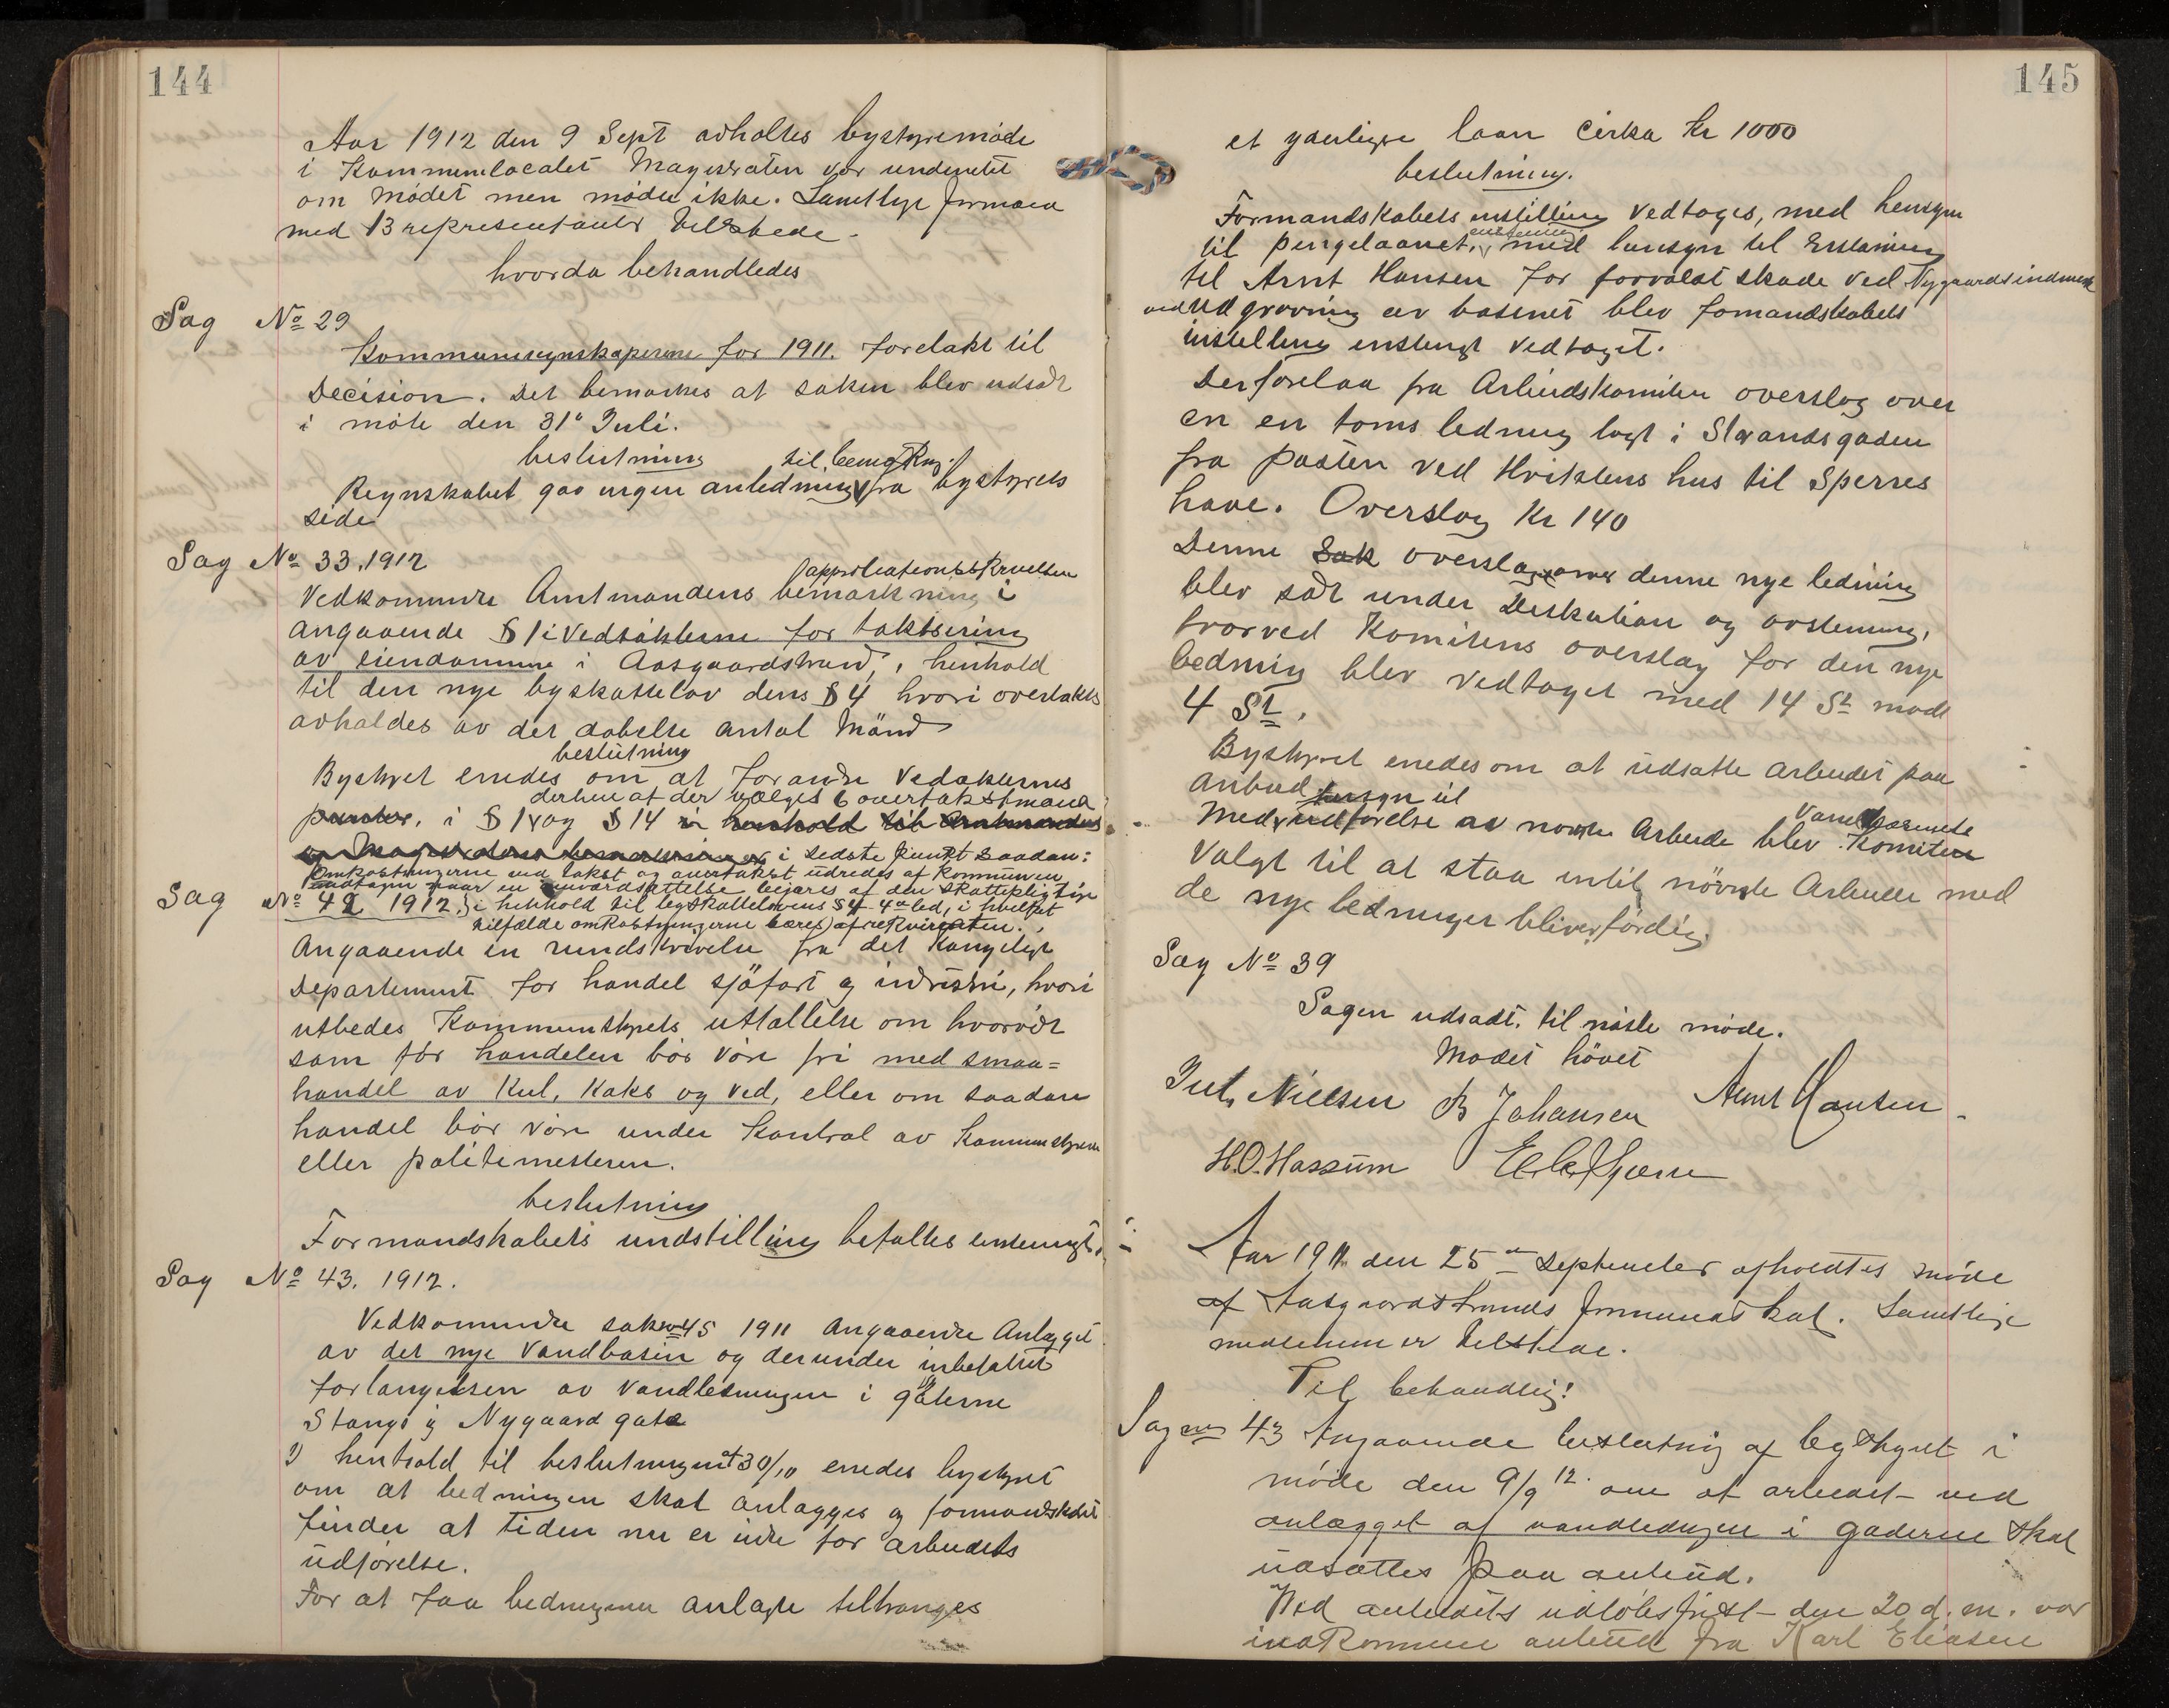 144
Aar 1912 den 9 Sept avholtes bystyremøde
i Kommunelocalet Magistraten var underrettet
om mødet men mødte ikke. Samtlige formænd
med 13 representanter tilstede.
hvorda behandledes
Sag No 29
Kommuneregnskaperne for 1911. forelakt til
Decision. Det bemærkes at saken blev udsat
i møte den 31' Juli.
beslutning
til bemærkng.
Regnskabet gav ingen anledning fra bystyrets
side
Sag No 33, 1912
approbationsskrivelse
Vedkommende Amtmandens bemærkning i
angaaende § 1 i Vedtækterne for taksering
av eiendomme i Aasgaardstrand, i henhold
til den nye byskattelov dens § 4 hvori overtakst
avholdes av det dobelte antal Mænd
beslutning
Bystyret enedes om at forandre Vedtækternes
derhen at der vælges 6 overtakstmænd
punkter. i § 1 og § 14 i henhold til Amtmandens
i sidste punkt saadan:
Omkostningerne ved takst og overtakst udredes af kommunen
undtagen naar en omværdsættelse begjæres af den skattepligtige
Sag No 42 1912. i henhold til byskattelovens § 4 4de led, i hvilket
tilfælde omkostningerne bæres af rekvirenten.
Angaaende en rundskrivelse fra det Kongelige
Departement for handel sjøfart og industri, hvori
utbedes Kommunestyrets uttallelse om hvorvidt
som før handelen bør være fri med smaa=
handel av Kul, Koks og ved, eller om saadan
handel bør være under Kontrol av Kommunestyrene
eller politimesteren.
beslutning
Formandskabets indstilling befaltes enstemigt.
Sag No 43. 1912.
Vedkommende sak no 45 1911 Angaaende Anlægget
av det nye Vandbasin og derunder inbefattet
forlængelsen av Vandledningen i gaterne
Stangs og Nygaard gate
I henhold til beslutningen at 30/10 enedes bystyret
om at ledningen skal anlægges og formandskabet
finder at tiden nu er inde for arbeidets
udførelse.
For at faa ledningene anlagte tiltrænges
145
et yderligere laan cirka Kr 1000
beslutning.
Formandskabets instilling Vedtoges, med hensyn
enstemig
til pengelaanet, med hensyn til Erstatning
til Arnt Hansen for forvoldt skade ved Nygaardsindmark
ved Udgravning av basinet blev fomandskabets
instelling enstemigt Vedtaget.
Der forelaa fra Arbeidskomiten overslag over
en en toms ledning lagt i Strandgaden
fra posten ved Hvitstens hus til Sperres
have. Overslag Kr 140
Denne Sak overslag over denne nye ledning
blev sat under Diskution og avstemning,
hvorved Komitens overslag for den nye
ledning blev vedtaget med 14 St mod
4 St.
Bystyret enedes om at udsætte arbeidet paa
anbud.
hensyn til
Vandværnets
Med udførelse av nævnte Arbeide blev Komiteen
Valgt til at staa intil nævnte Arbeide med
de nye ledninger bliver færdig.
Sag No 39
Sagen udsadt. til næste møde.
Mødet hævet
Juls Nielsen B Johansen Arnt Hansen.
H.O. Hassum
Aar 1911 den 25de September afholdtes møde
af Aasgaardstrands formandskab. Samtlige
medlemmer tilstede.
Til behandlig!
Sag no 43 Angaaende beslutning af bystyret i
møde den 9/9 12. om at arbeidet ved
anlægget af vandledngen i gaderne skal
udsættes paa anbud.
Ved anbudets udløbsfrist den 20 d.m. var
indkommen anbud fra Karl Eliasen